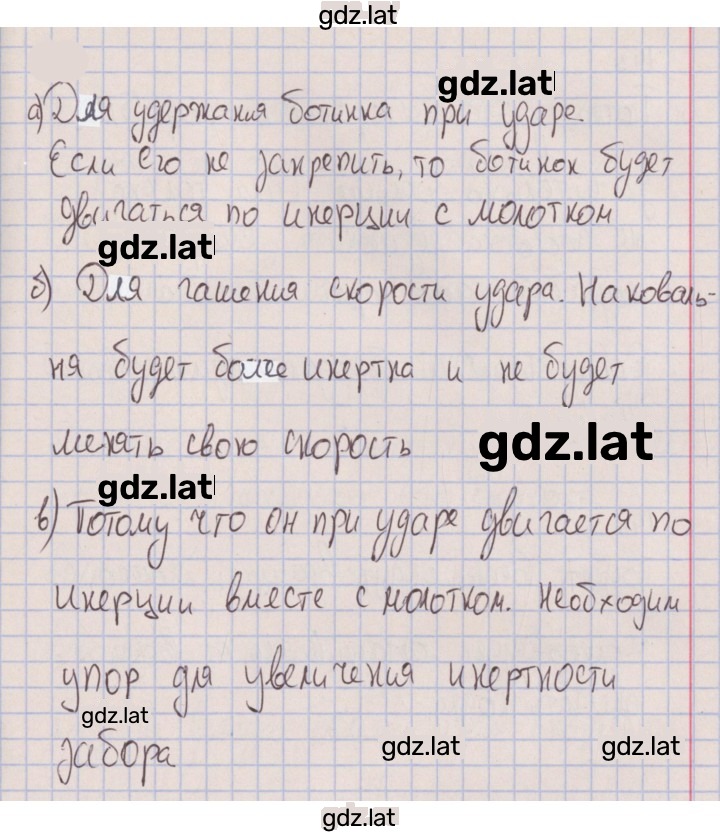 gdz.lat
gdz.lat
а) Для удержания ботинка при ударе.
Если его не закрепить, то ботинок будет
двигаться по инерции с молотком
gdz.lat
б) Для гашения скорости удара. Наковаль-
ня будет более инертна и не будет
менять свою скорость
gdz.lat
gdz.lat
в) Потому что он при ударе двигается по
инерции вместе с молотком. Необходим
упор для увеличения инертности
gdz.lat
забора
gdz.lat
gdz.lat
gdz.lat